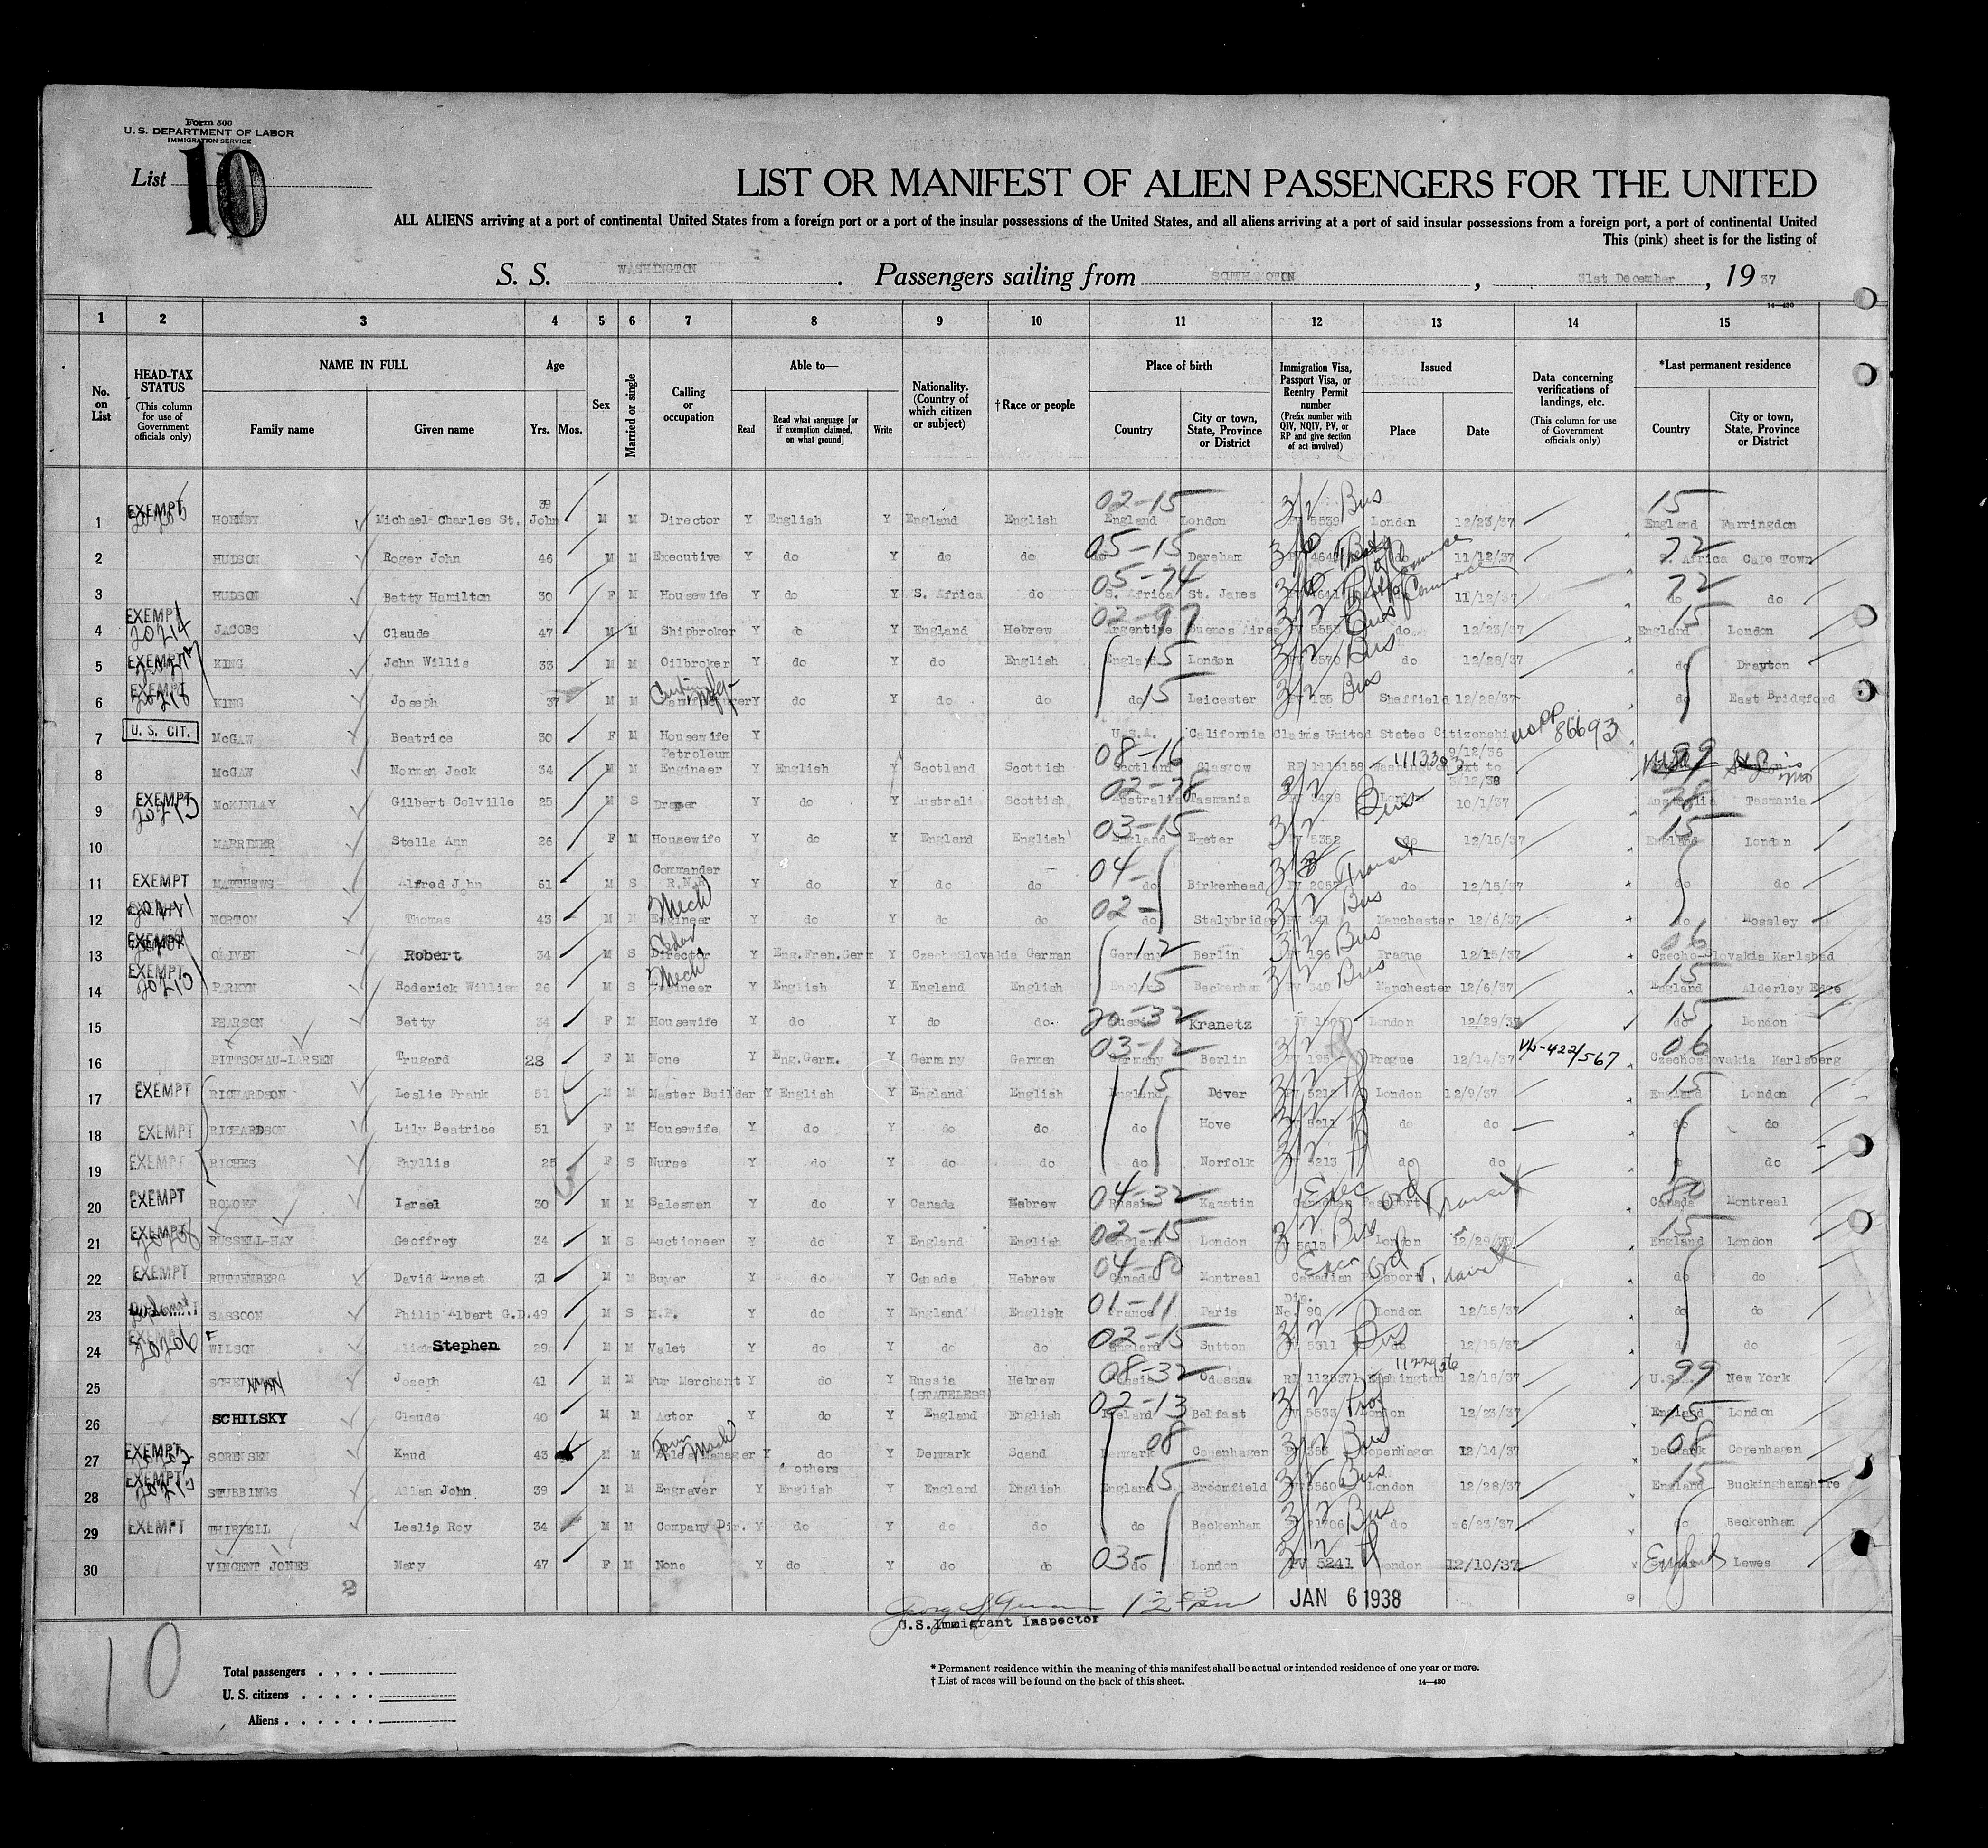 Form 500
U. S. DEPARTMENT OF LABOR
IMMIGRATION SERVICE
List 10
LIST OR MANIFEST OF ALIEN PASSENGERS FOR THE UNITED
ALL ALIENS arriving at a port of continental United States from a foreign port or a port of the insular possessions of the United States, and all aliens arriving at a port of said insular possessions from a foreign port, a port of continental United
This (pink) sheet is for the listing of
S. S. WASHINGTON. Passengers sailing from SOUTHAMPTON, 31st December, 1937
14—430
1 2 3 4 5 6 7 8 9 10 11 12 13 14 15
No. on List
HEAD-TAX STATUS (This column for use of Government officials only)
NAME IN FULL Family name Given name
Age Yrs. Mos.
Sex
Married or single
Calling or occupation
Able to— Read Read what language [or if exemption claimed, on what ground] Write
Nationality. (Country of which citizen or subject)
† Race or people
Place of birth Country City or town, State, Province or District
Immigration Visa, Passport Visa, or Reentry Permit number (Prefix number with QIV, NQIV, PV, or RP and give section of act involved)
Issued Place Date
Data concerning verifications of landings, etc. (This column for use of Government officials only)
*Last permanent residence Country City or town, State, Province or District
1 EXEMPT HORNBY Michael Charles St. John 39 M M Director Y English Y England English 02-15 England London 3/2 Bus PV 5539 London 12/23/37 15 England Farringdon
2 HUDSON Roger John 46 M M Executive Y do Y do do 05-15 do Dereham do 11/12/37 72 S. Africa Cape Town
3 HUDSON Betty Hamilton 30 F M Housewife Y do Y S. Africa do 05-74 S. Africa St. James do 11/12/37 72 do do
4 EXEMPT 20214 JACOBS Claude 47 M M Shipbroker Y do Y England Hebrew 02-97 Argentine Buenos Aires 3/2 Bus PV 5555 do 12/23/37 15 England London
5 EXEMPT KING John Willis 33 M M Oilbroker Y do Y do English England 15 London 3/2 Bus PV 5570 do 12/28/37 do Drayton
6 EXEMPT KING Joseph 37 M M Manufacturer Y do Y do do do 15 Leicester 3/2 Bus PV 135 Sheffield 12/28/37 do East Bridgford
7 U. S. CIT. McGAW Beatrice 30 F M Housewife Y U.S.A. California Claims United States Citizenship USPP 86693
8 McGAW Norman Jack 34 M M Petroleum Engineer Y English Y Scotland Scottish 08-16 Scotland Glasgow RP 1115158 Washington ext to 9/12/36 9/12/38 99
9 EXEMPT McKINLAY Gilbert Colville 25 M S Draper Y do Y Australi Scottish 02-78 Australia Tasmania 3/2 Bus London 10/1/37 78 Australia Tasmania
10 MARRINER Stella Ann 26 F M Housewife Y do Y England English 03-15 England Exeter 3/2 PV 5352 do 12/15/37 15 England London
11 EXEMPT MATTHEWS Alfred John 61 M S Commander R.N. Y do Y do do 04- do Birkenhead 3/3 Transit do 12/15/37 do do
12 NORTON Thomas 43 M M Mech Engineer Y do Y do do 02- do Stalybridge 3/2 Bus PV 341 Manchester 12/6/37 do Mossley
13 EXEMPT OLIVEN Robert 34 M S Director Y Eng.Fren.Germ Y CzechoSlovakia German Germany 12 Berlin 3/2 Bus PV 196 Prague 12/15/37 06 Czecho-Slovakia Karlsbad
14 EXEMPT 20210 PARKYN Roderick William 26 M S Mech Engineer Y English Y England English England 15 Beckenham 3/2 Bus PV 340 Manchester 12/6/37 15 England Alderley Edge
15 PEARSON Betty 34 F M Housewife Y do Y do do 20-32 Russia Kranetz London 12/29/37 15 do London
16 PITTSCHAU-LARSEN Trugard 28 F M None Y Eng.Germ. Y Germany German 03-12 Germany Berlin 3/2 PV 195 Prague 12/14/37 06 Czechoslovakia Karlsberg
17 EXEMPT RICHARDSON Leslie Frank 51 M M Master Builder Y English Y England English England 15 Dover 3/2 PV 5212 London 12/9/37 15 England London
18 EXEMPT RICHARDSON Lily Beatrice 51 F M Housewife Y do Y do do do Hove 3/2 PV 5211 do do do do
19 EXEMPT RICHES Phyllis 25 F S Nurse Y do Y do do do Norfolk 3/2 PV 5213 do do do do
20 EXEMPT ROMOFF Israel 30 M M Salesman Y do Y Canada Hebrew 04-32 Russia Kazatin Exec ord Transit Canadian Passport 80 Canada Montreal
21 EXEMPT RUSSELL-HAY Geoffrey 34 M S Auctioneer Y do Y England English 02-15 England London 3/2 Bus 5613 London 12/29/37 15 England London
22 EXEMPT RUTTENBERG David Ernest 31 M M Buyer Y do Y Canada Hebrew 04-80 Canada Montreal Exec ord Transit Canadian Passport do do
23 Diplomat SASSOON Philip Albert G.D. 49 M S M.P. Y do Y England English 01-11 France Paris Dip. No. 90 London 12/15/37 do do
24 EXEMPT 20206 WILSON Stephen 29 M M Valet Y do Y do do 02-15 England Sutton 3/2 Bus PV 5311 do 12/15/37 do do
25 Joseph 41 M M Fur Merchant Y do Y Russia (STATELESS) Hebrew 08-32 Russia Odessa RP 1125371 Washington 12/18/37 99 U.S.A. New York
26 SCHILSKY Claude 40 M M Actor Y do Y England English 02-13 Ireland Belfast 3/2 Prof PV 5533 London 12/23/37 15 England London
27 EXEMPT SORENSEN Knud 43 M M Sales Manager Y do & others Y Denmark Scand Denmark 08 Copenhagen 3/2 Bus PV 355 Copenhagen 12/14/37 08 Denmark Copenhagen
28 EXEMPT STUBBINGS Allan John 39 M M Engraver Y English Y England English England 15 Broomfield 3/2 Bus PV 5560 London 12/28/37 15 England Buckinghamshire
29 EXEMPT THIRTELL Leslie Roy 34 M M Company Dir. Y do Y do do do Beckenham 3/2 Bus do 6/23/37 do Beckenham
30 VINCENT JONES Mary 47 F M None Y do Y do do 03- do London 3/2 PV 5241 London 12/10/37 England Lewes
2
JAN 6 1938
U.S. Immigrant Inspector
10
Total passengers
U. S. citizens
Aliens
* Permanent residence within the meaning of this manifest shall be actual or intended residence of one year or more.
† List of races will be found on the back of this sheet.
14—430